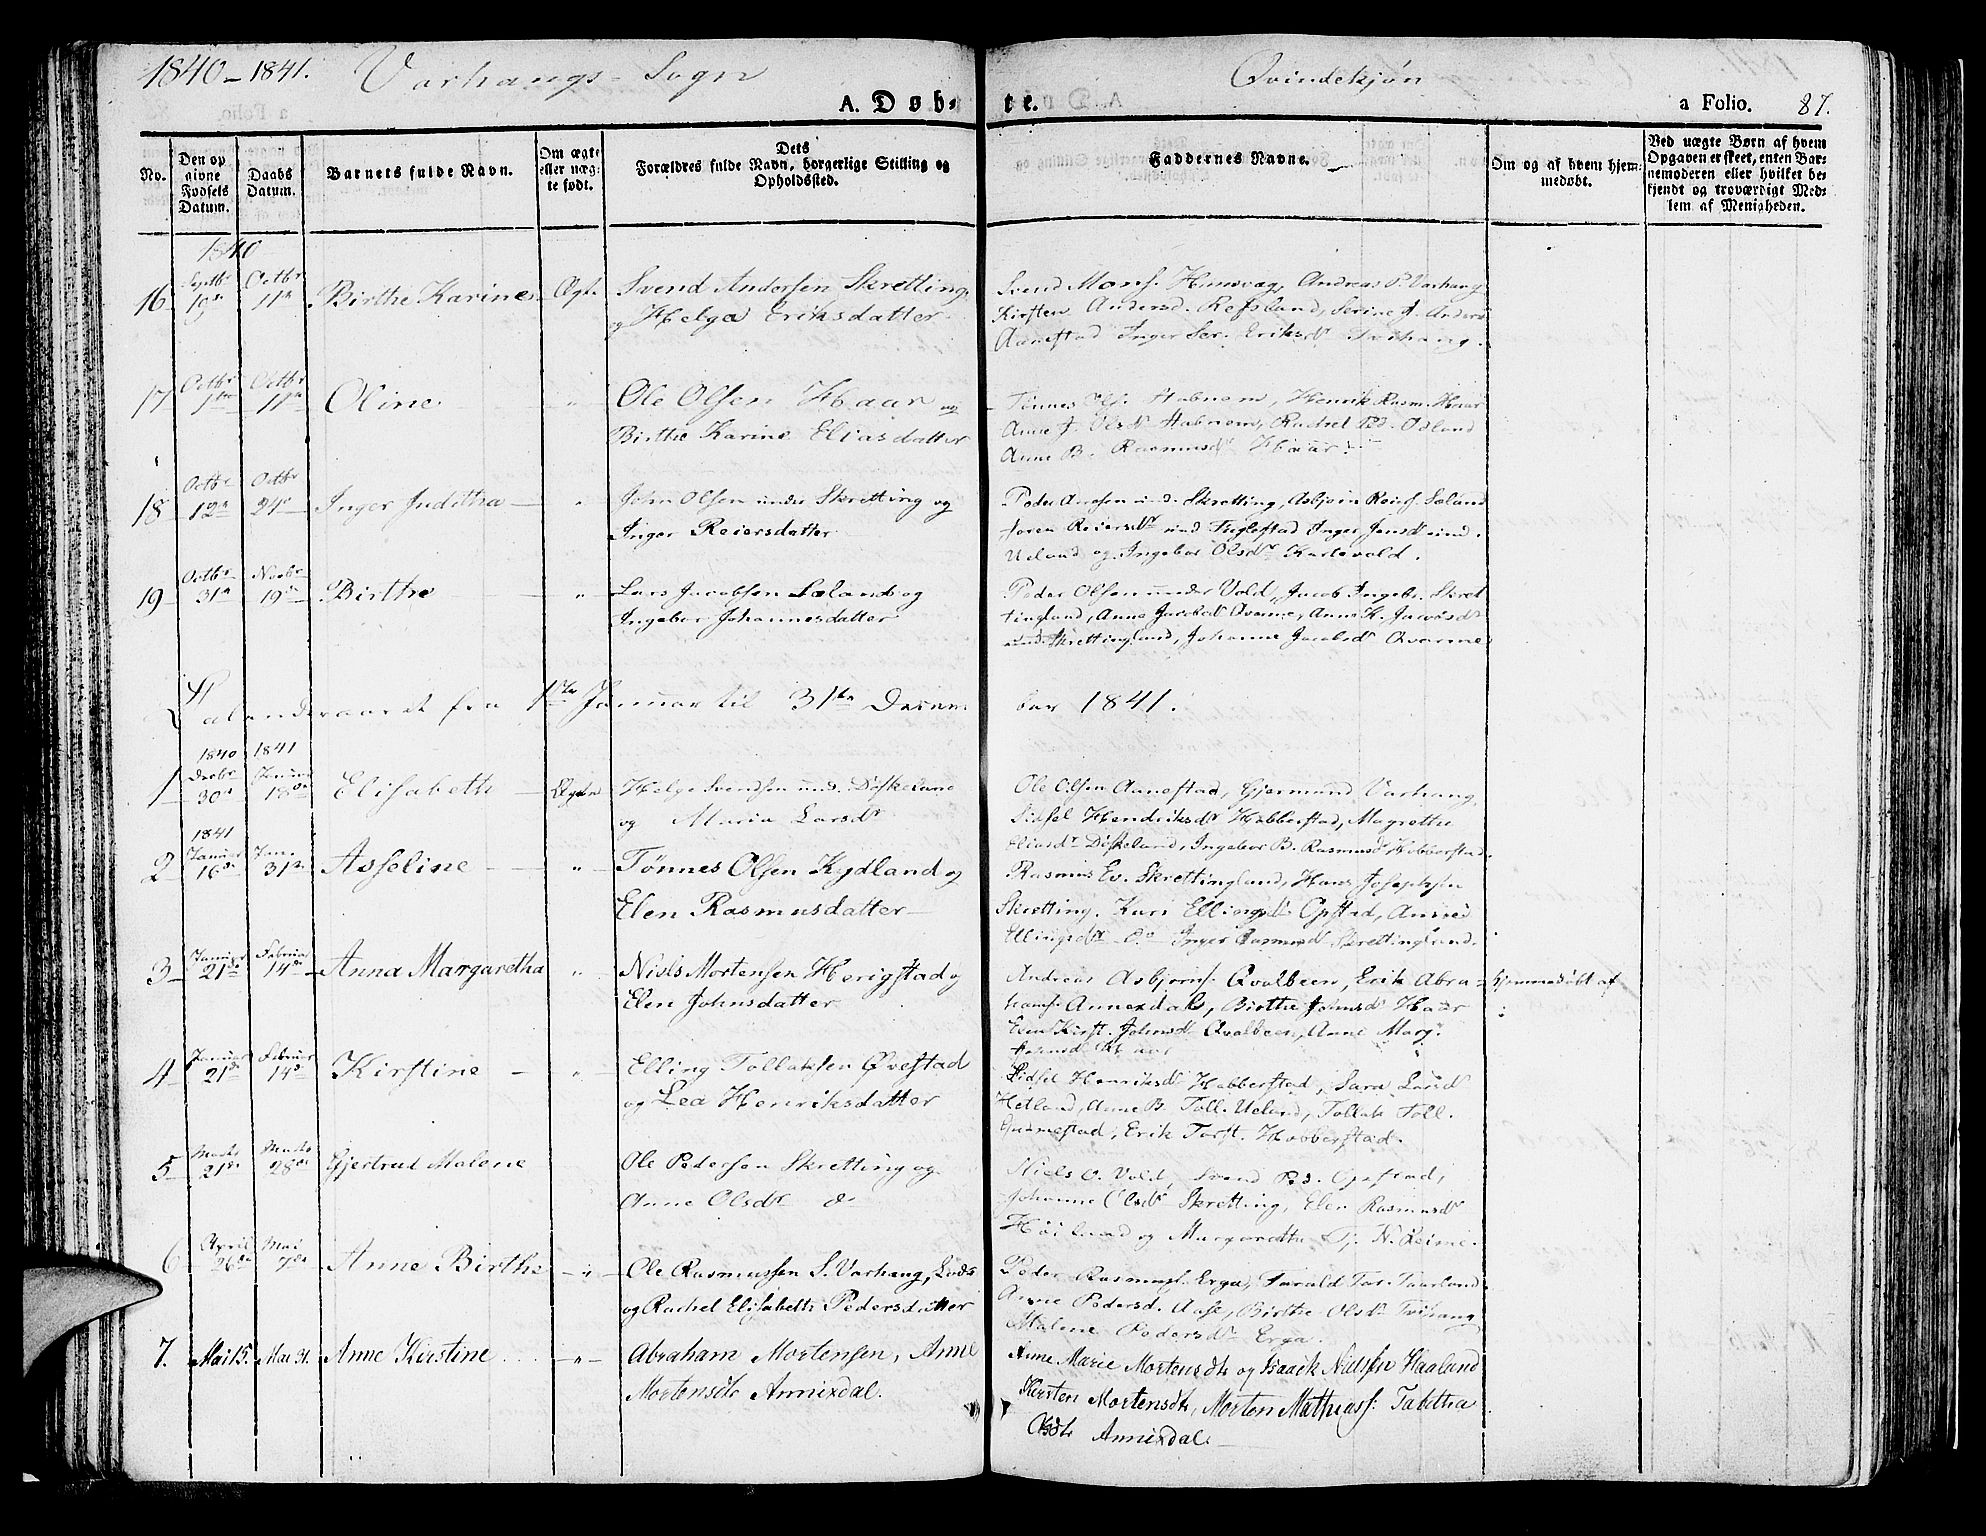 1840-1841. Varhaugs-Sogn Qvindekjøn
A. Døb- te. a Folio. 87.
No.
Den op givne Fødsels Datum.
Daabs Datum.
Barnets fulde Navn.
Om ægte eller uæg- te født.
Dets Forældres fulde Navn, borgerlige Stilling og Opholdssted.
Faddernes Navne.
Om og af hvem hjem- medøbt.
Ved uægte Børn af hvem Opgaven er skeet, enten Bar- nemoderen eller hvilket be- kjendt og troværdigt Med- lem af Menigheden.
1840
16 Septbr 19de Octbr 11te Birthe Karine Ægte Svend Andersen Skretting
og Helga Eriksdatter
Svend Mons. Hunsvag, Andreas P. Varhaug
Kirsten Andersd. Refsland, Serine A. Anders
Aanestad Inger Ser. Eriksdr Tvihaug.
17 Octbr 1ste Octbr 11te Oline " Ole Olsen Haar og
Birthe Karine Eliasdatter
Tønnes Ols. Aabnem, Henrik Rasm. Haar
Anne J. Olsdr Aabnem, Rachel Odland
Anne B. Rasmusdr Haar.
18 Octbr 12te Octbr 24de Inger Juditha " John Olsen under Skretting og
Inger Reiersdatter
Peder und. Skretting, Asbjørn Reiers. Sæland
Reiersdr und Inger Jonsdr und.
Ueland og Ingebor Olsdr Karlsvold.
19 Octbr 31te Novbr 19de Birthe " Lars Jacobsen Sæland og
Ingebor Johannesdatter
Peder Olsen under Vold, Jacob Ingebr. Skret
tingland, Anne Jacobsdr Qvarme, Anne K. Jacobsdr
und. Skrettingland, Johanne Jacobsdr Qvarme
Kalenderaaret fra 1ste Januar til 31te Decem ber 1841.
1840 1841
1 Decbr 30te Januar 18de Elisabeth Ægte Helge Svendsen und. Døskeland
og Maria Larsdr
Ole Olsen Aanestad, Gjermund Varhaug,
Sidsel Hendriksdr Hobberstad, Magrethe
Eliasdr Døskeland, Ingebor B. Rasmusdr Hobberstad.
1841
2 Januar 16de Jan. 31te Asseline " Tønnes Olsen Kydland og
Elen Rasmusdatter
Rasmus Ev. Skrettingland, Hans Josephsen
Skretting. Kari Ellingsdr Opstad,
Ellingsdtr do Inger Rasmusdr Skrettingland.
3 Januar 21de Februar 14de Anna Margaretha " Niels Mortensen Herigstad og
Elen Johnsdatter
Andreas Asbjørns. Qvalbeen, Erik Abra-
hams. Annexdal, Birthe Johnsdr Haar
Elen Kirst. Johnsdr Qvalbeen, Anne Marg.
Haar
hjemmedøbt af
4 Januar 21de Februar 14de Kirstine " Elling Tollaksen Øvestad
og Lea Henriksdatter
Sidsel Henriksdr Hobberstad, Sara Larsd
Hetland, Anne B. Toll. Ueland, Tollak Toll.
Erik Torst. Hobberstad.
5 Marts 21de Marts 28de Gjertrud Malene Ole Pedersen Skretting og
Anne Olsdr do
Niels O. Vold, Svend Opstad,
Johanne Olsdr Skretting, Elen Rasmusdr
Høiland og Margarethe Tj. N. Reime.
6 April 26de Mai Anne Birthe " Ole Rasmussen S. Varhaug, Lods
og Rachel Elisabeth Pedersdatter
Peder Rasmus. Erga, Tarald Tor. Taarland
Anne Pedersd. Aase, Birthe Olsdr Tvihaug
Malene Pedersdr Erga.
7. Mai 15. Mai 31. Anne Kirstine " Abraham Mortensen, Anne
Mortensdtr Annixdal.
Anne Marie Mortensdtr og Isaack Nielsen Haaland
Kirsten Mortensdtr, Morten Mathias. Tabitha
Olsdtr Annixdal.